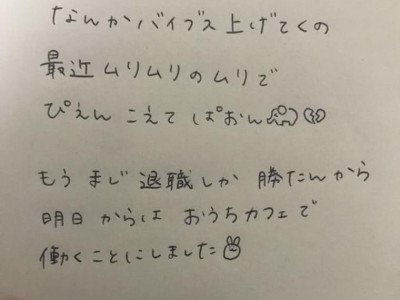 なんかバイブス上げてくの
最近ムリムリのムリで
ぴえん こえて ぱおん
もう まじ 退職しか 勝たんから
明日 からは おうちカフェで
働くことにしました